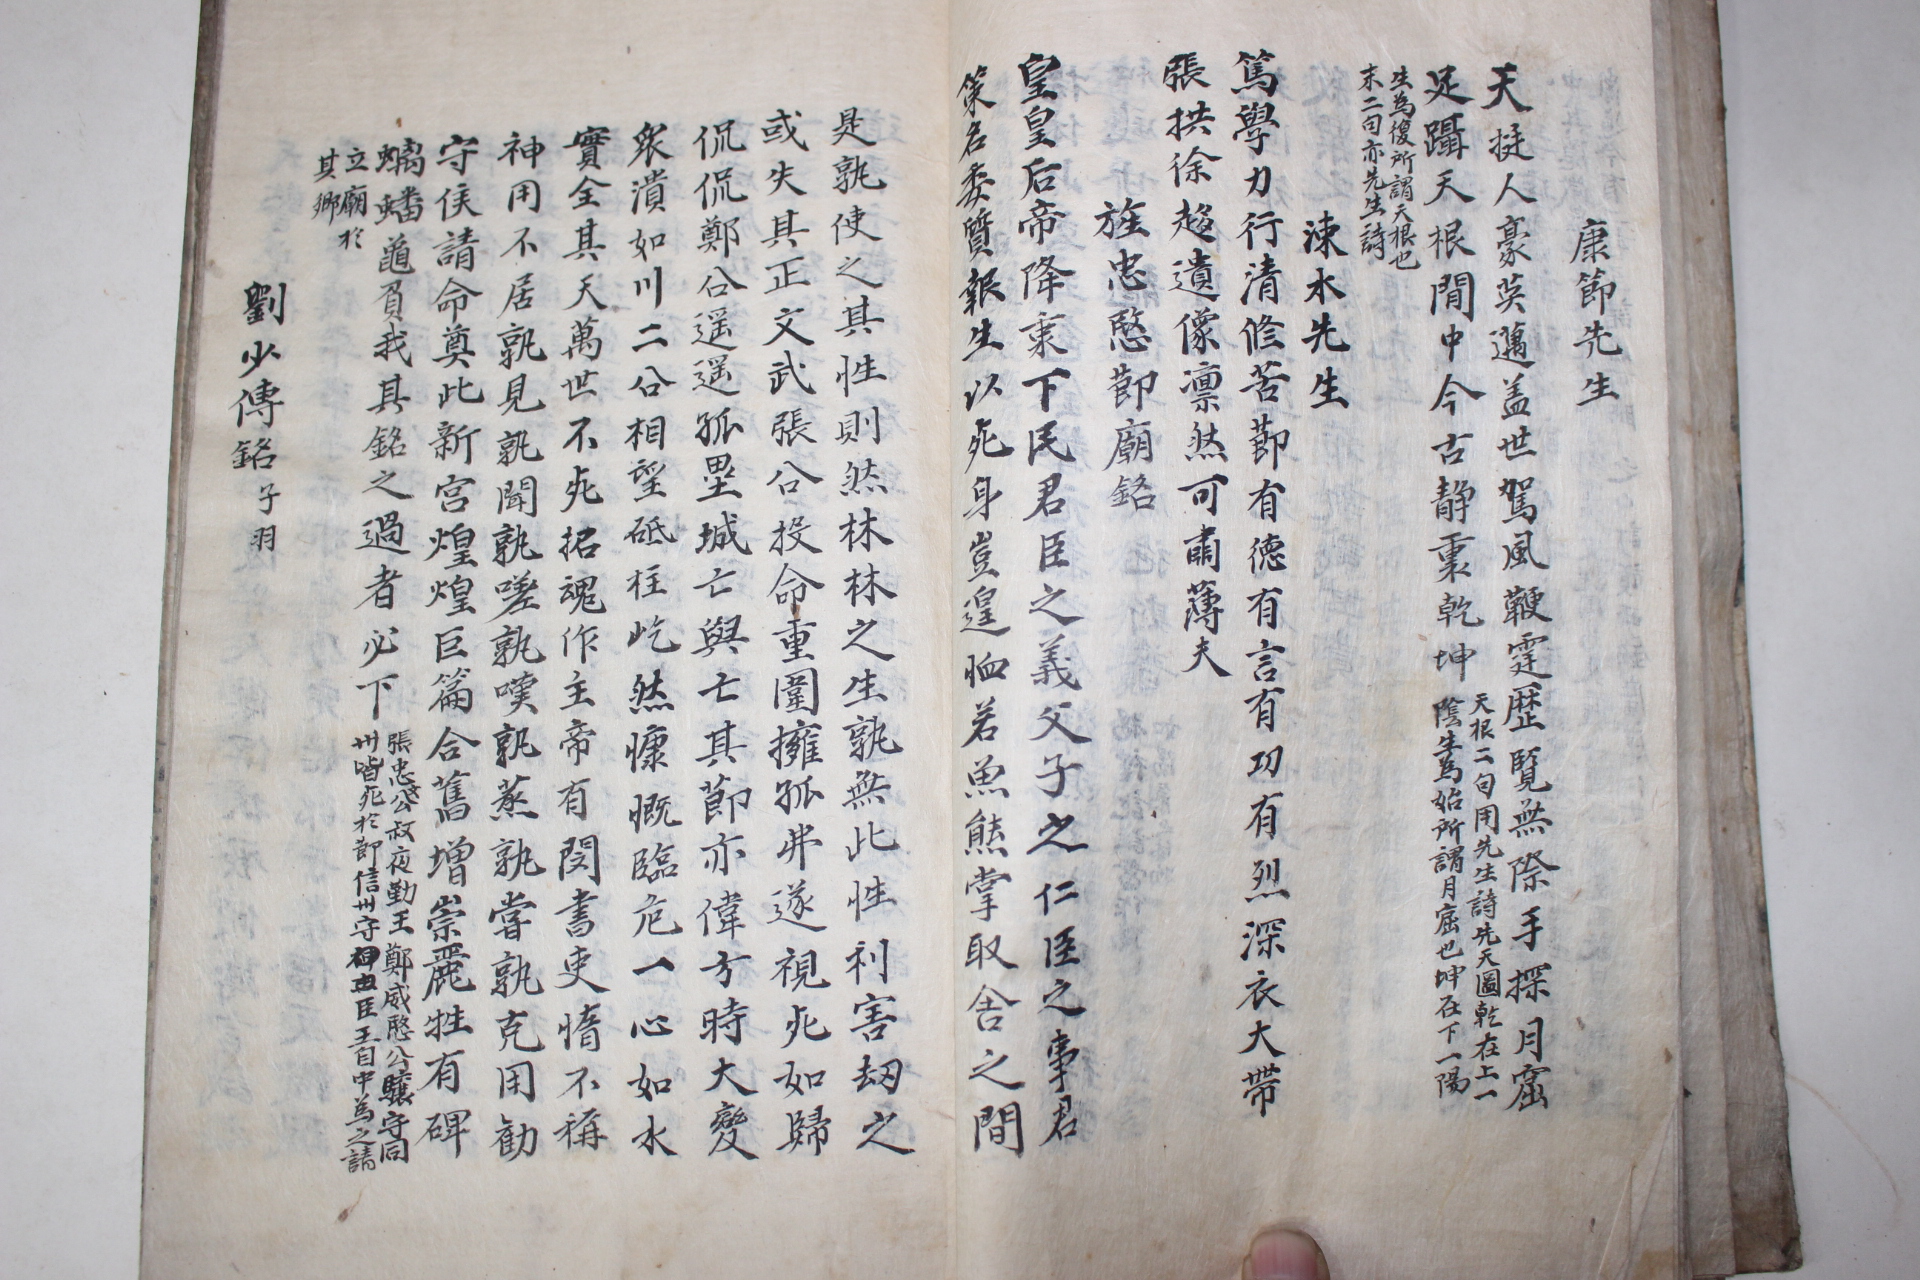 康節先生
天挺人豪英邁盖世駕風鞭霆歷覽無際手探月窟
足躡天根閒中今古静裏乾坤
天根二句用先生詩先天圖乾在上一
陰生為姤所謂月窟也坤在下一陽
生為復所謂天根也
末二句亦先生詩
涑水先生
篤學力行清修苦節有德有言有功有烈深衣大帶
張拱徐趍遺像凛然可肅薄夫
旌忠愍節廟銘
皇皇后帝降衷下民君臣之義父子之仁臣之事君
策名委質報生以死身豈遑恤若魚熊掌取舍之間
是孰使之其性則然林林之生孰無此性利害刧之
或失其正文武張公投命重圍擁孤弗遂視死如歸
侃侃鄭公遥遥孤壘城亡與亡其節亦偉方時大變
衆潰如川二公相望砥柱屹然慷慨臨危一心如水
實全其天萬世不死招魂作主帝有閔書吏惰不稱
神用不居孰見孰聞孰嗟孰嘆孰蒸孰嘗孰克用勸
守侯請命奠此新宮煌煌巨篇合舊增崇麗牲有碑
螭蟠龜負我其銘之過者必下
張忠公叔夜勤王鄭威愍公驤守同
州皆死於節信州守臣王自中為之請
立廟於
其鄉
劉少傅銘子羽